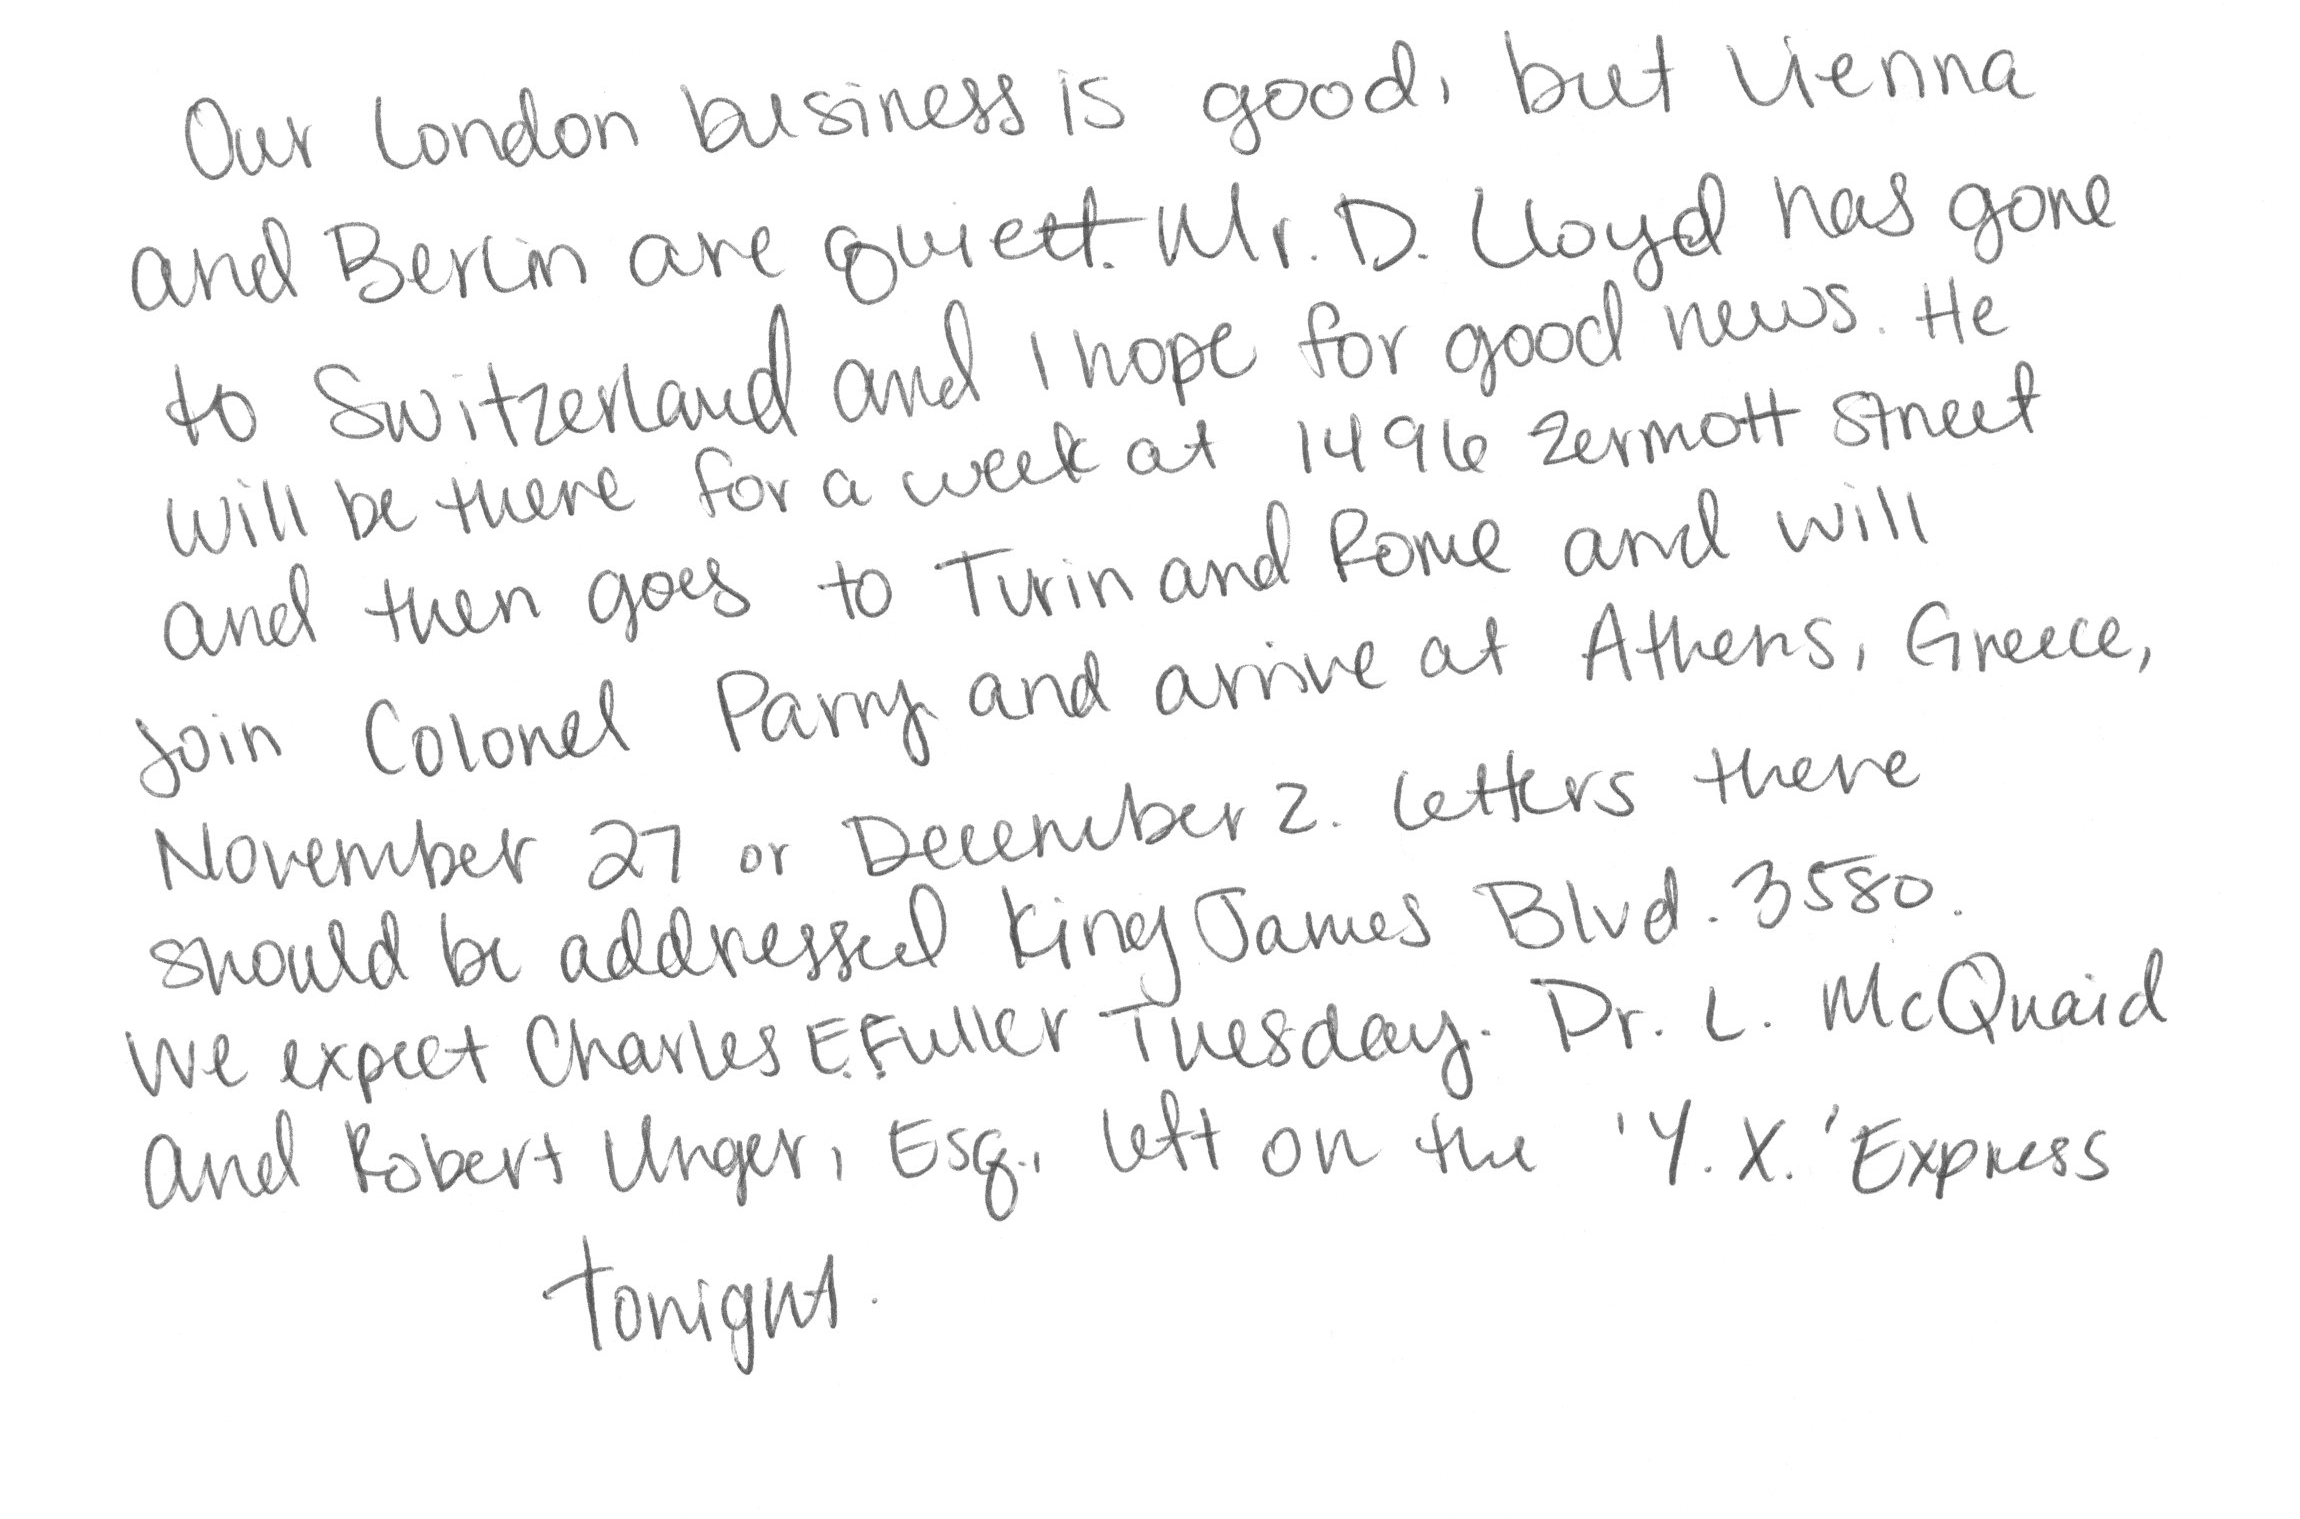 Our London business is good, but Vienna
and Berlin are quiett. Mr. D. Lloyd has gone
to Switzerland and I hope for good news. He
will be there for a week at 1496 Zermott street
and then goes to Turin and Rome and will
join Colonel Parry and arrive at Athens, Greece,
November 27 or December 2. Letters there
should be addressed King James Blvd. 3580.
We expect Charles E. Fuller Tuesday. Dr. L. McQuaid
and Robert Unger, Esq., left on the 'Y. X.' Express
tonight.